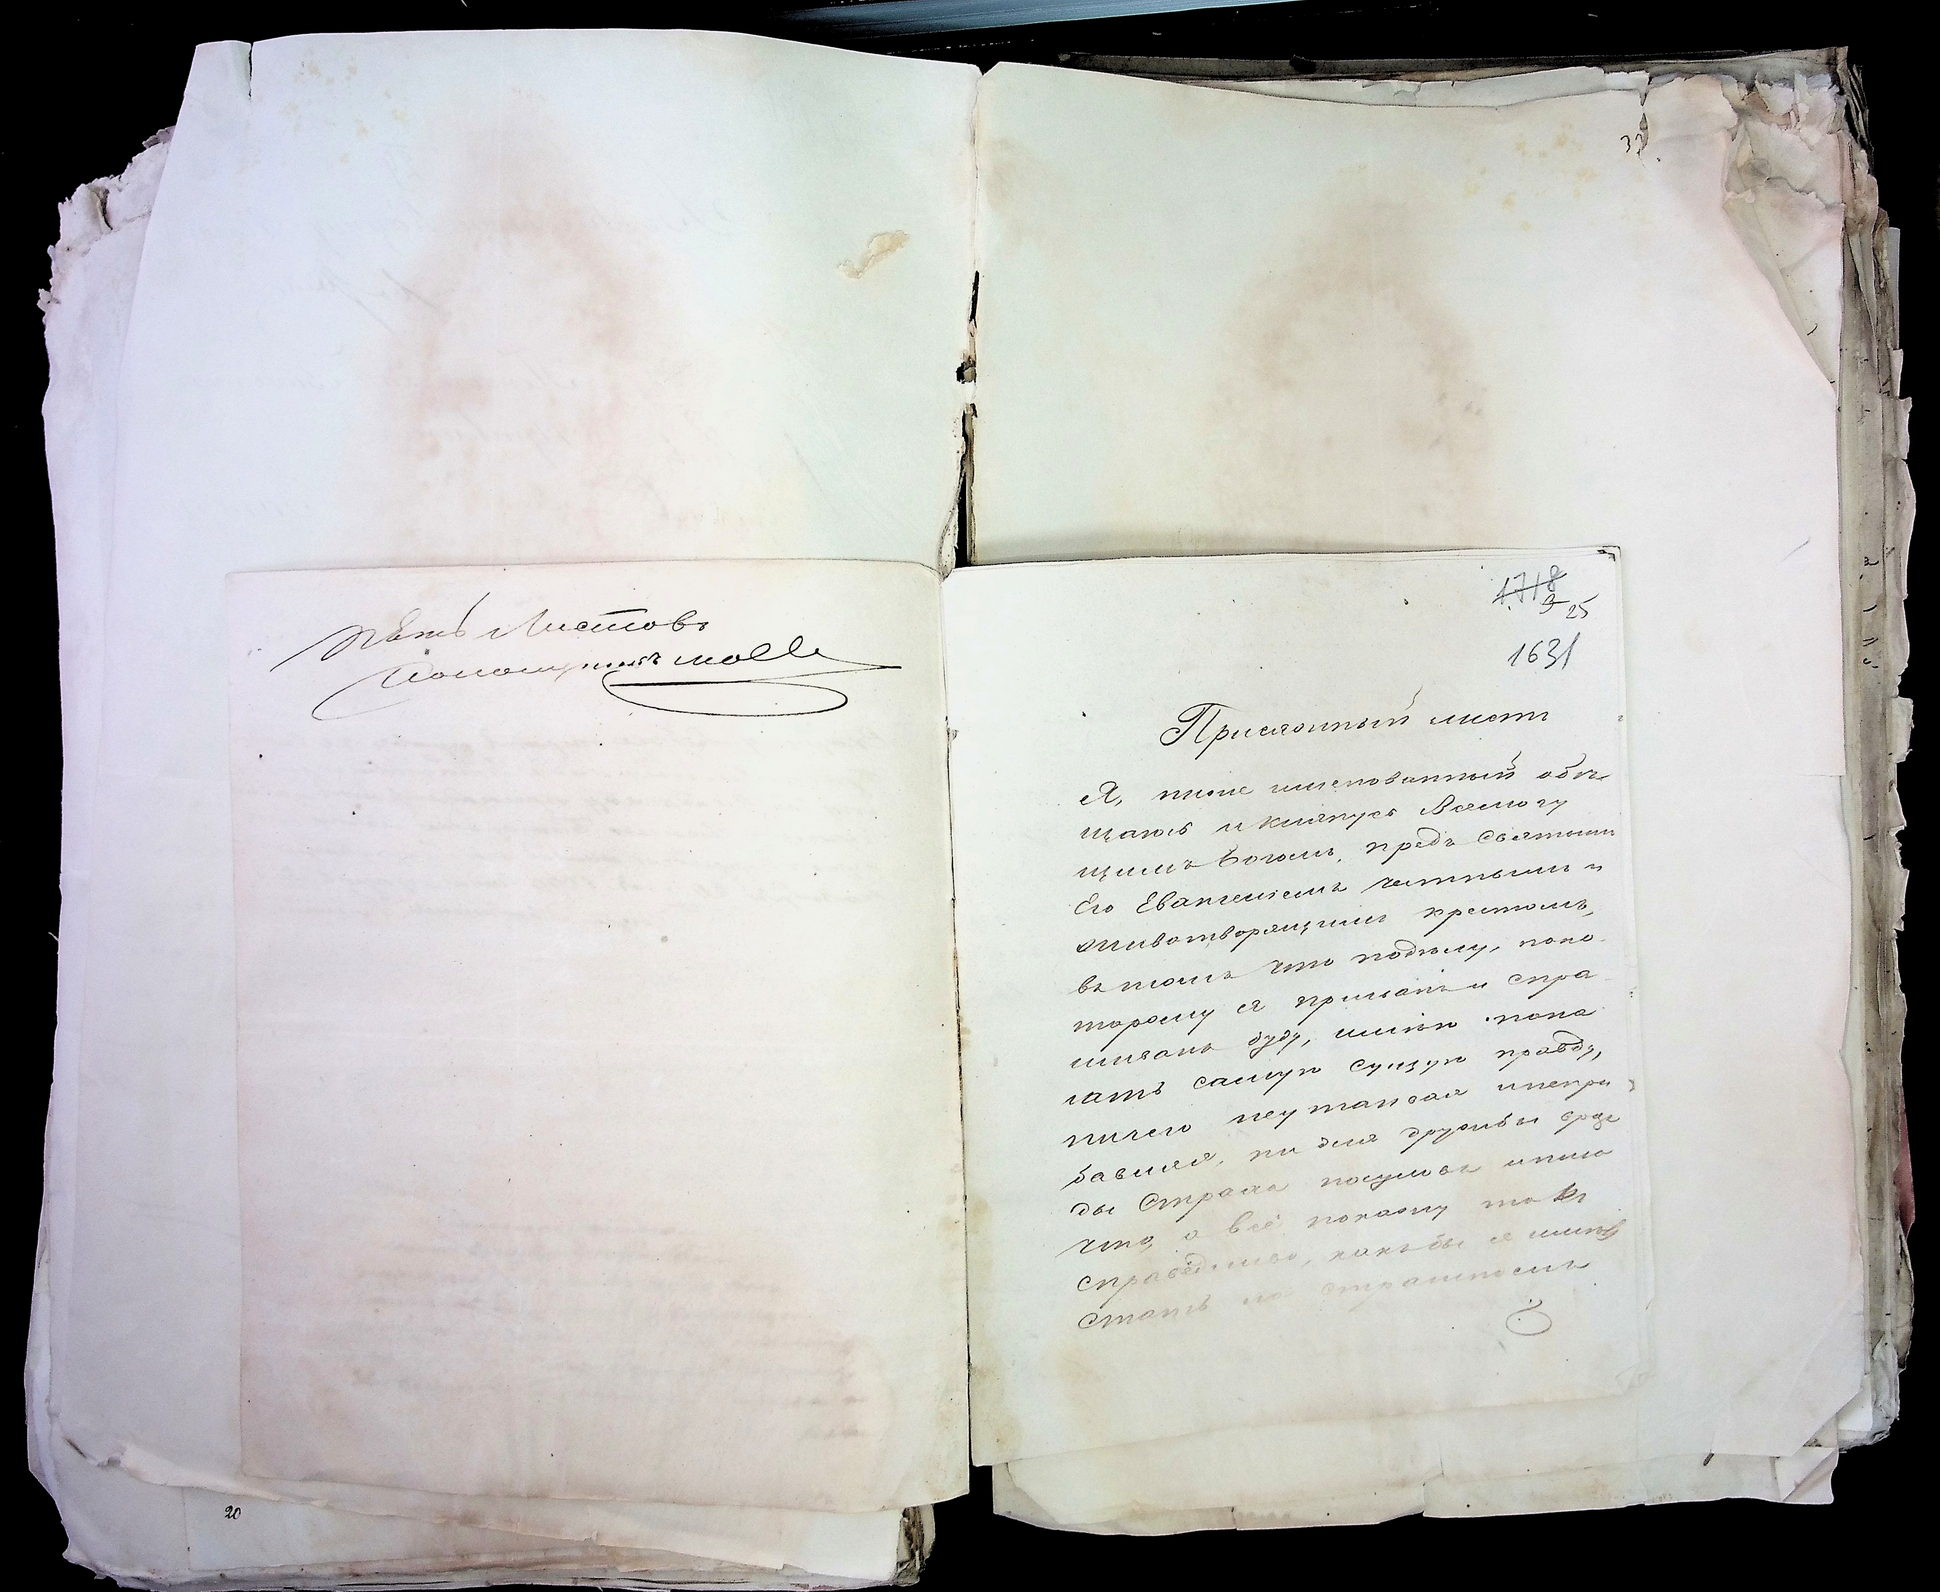 пять листовъ
33
1718
9 25
1631
Присяжный листъ
Я, ниже именованный обѣ
щаюсь и клянусь Всемогу
щимъ Богомъ, предъ Святымъ
Его Евангеліемъ честнымъ и
животворящимъ крестомъ,
въ томъ что по дѣлу, по ко
торому я призванъ и спра
шиванъ буду, имѣю пока
зать самую сущую правду,
ничего неутаивая и непри
бавляя, ни для дружбы враж
ды страха посуловъ и ни по
что, а всё покажу такъ
справедливо, какъ бы я имѣлъ
стать на страшномъ
20